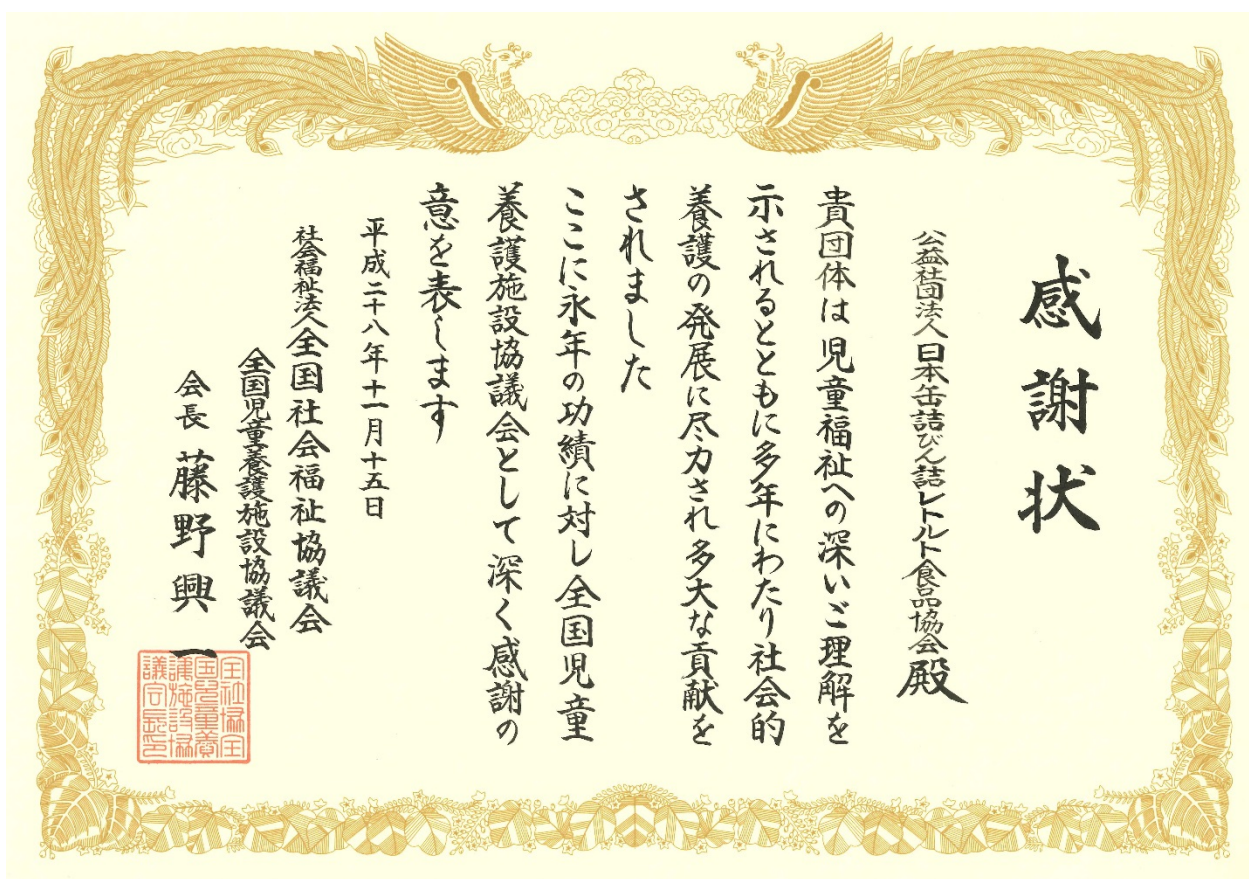 感謝状
公益社団法人日本缶詰びん詰レトルト食品協会殿
貴団体は児童福祉への深いご理解を
示されるとともに多年にわたり社会的
養護の発展に尽力され多大な貢献を
されました
ここに永年の功績に対し全国児童
養護施設協議会として深く感謝の
意を表します
平成二十八年十一月十五日
社会福祉法人全国社会福祉協議会
全国児童養護施設協議会
会長 藤野興一
全社協全
国児童養
護施設協
議会長印